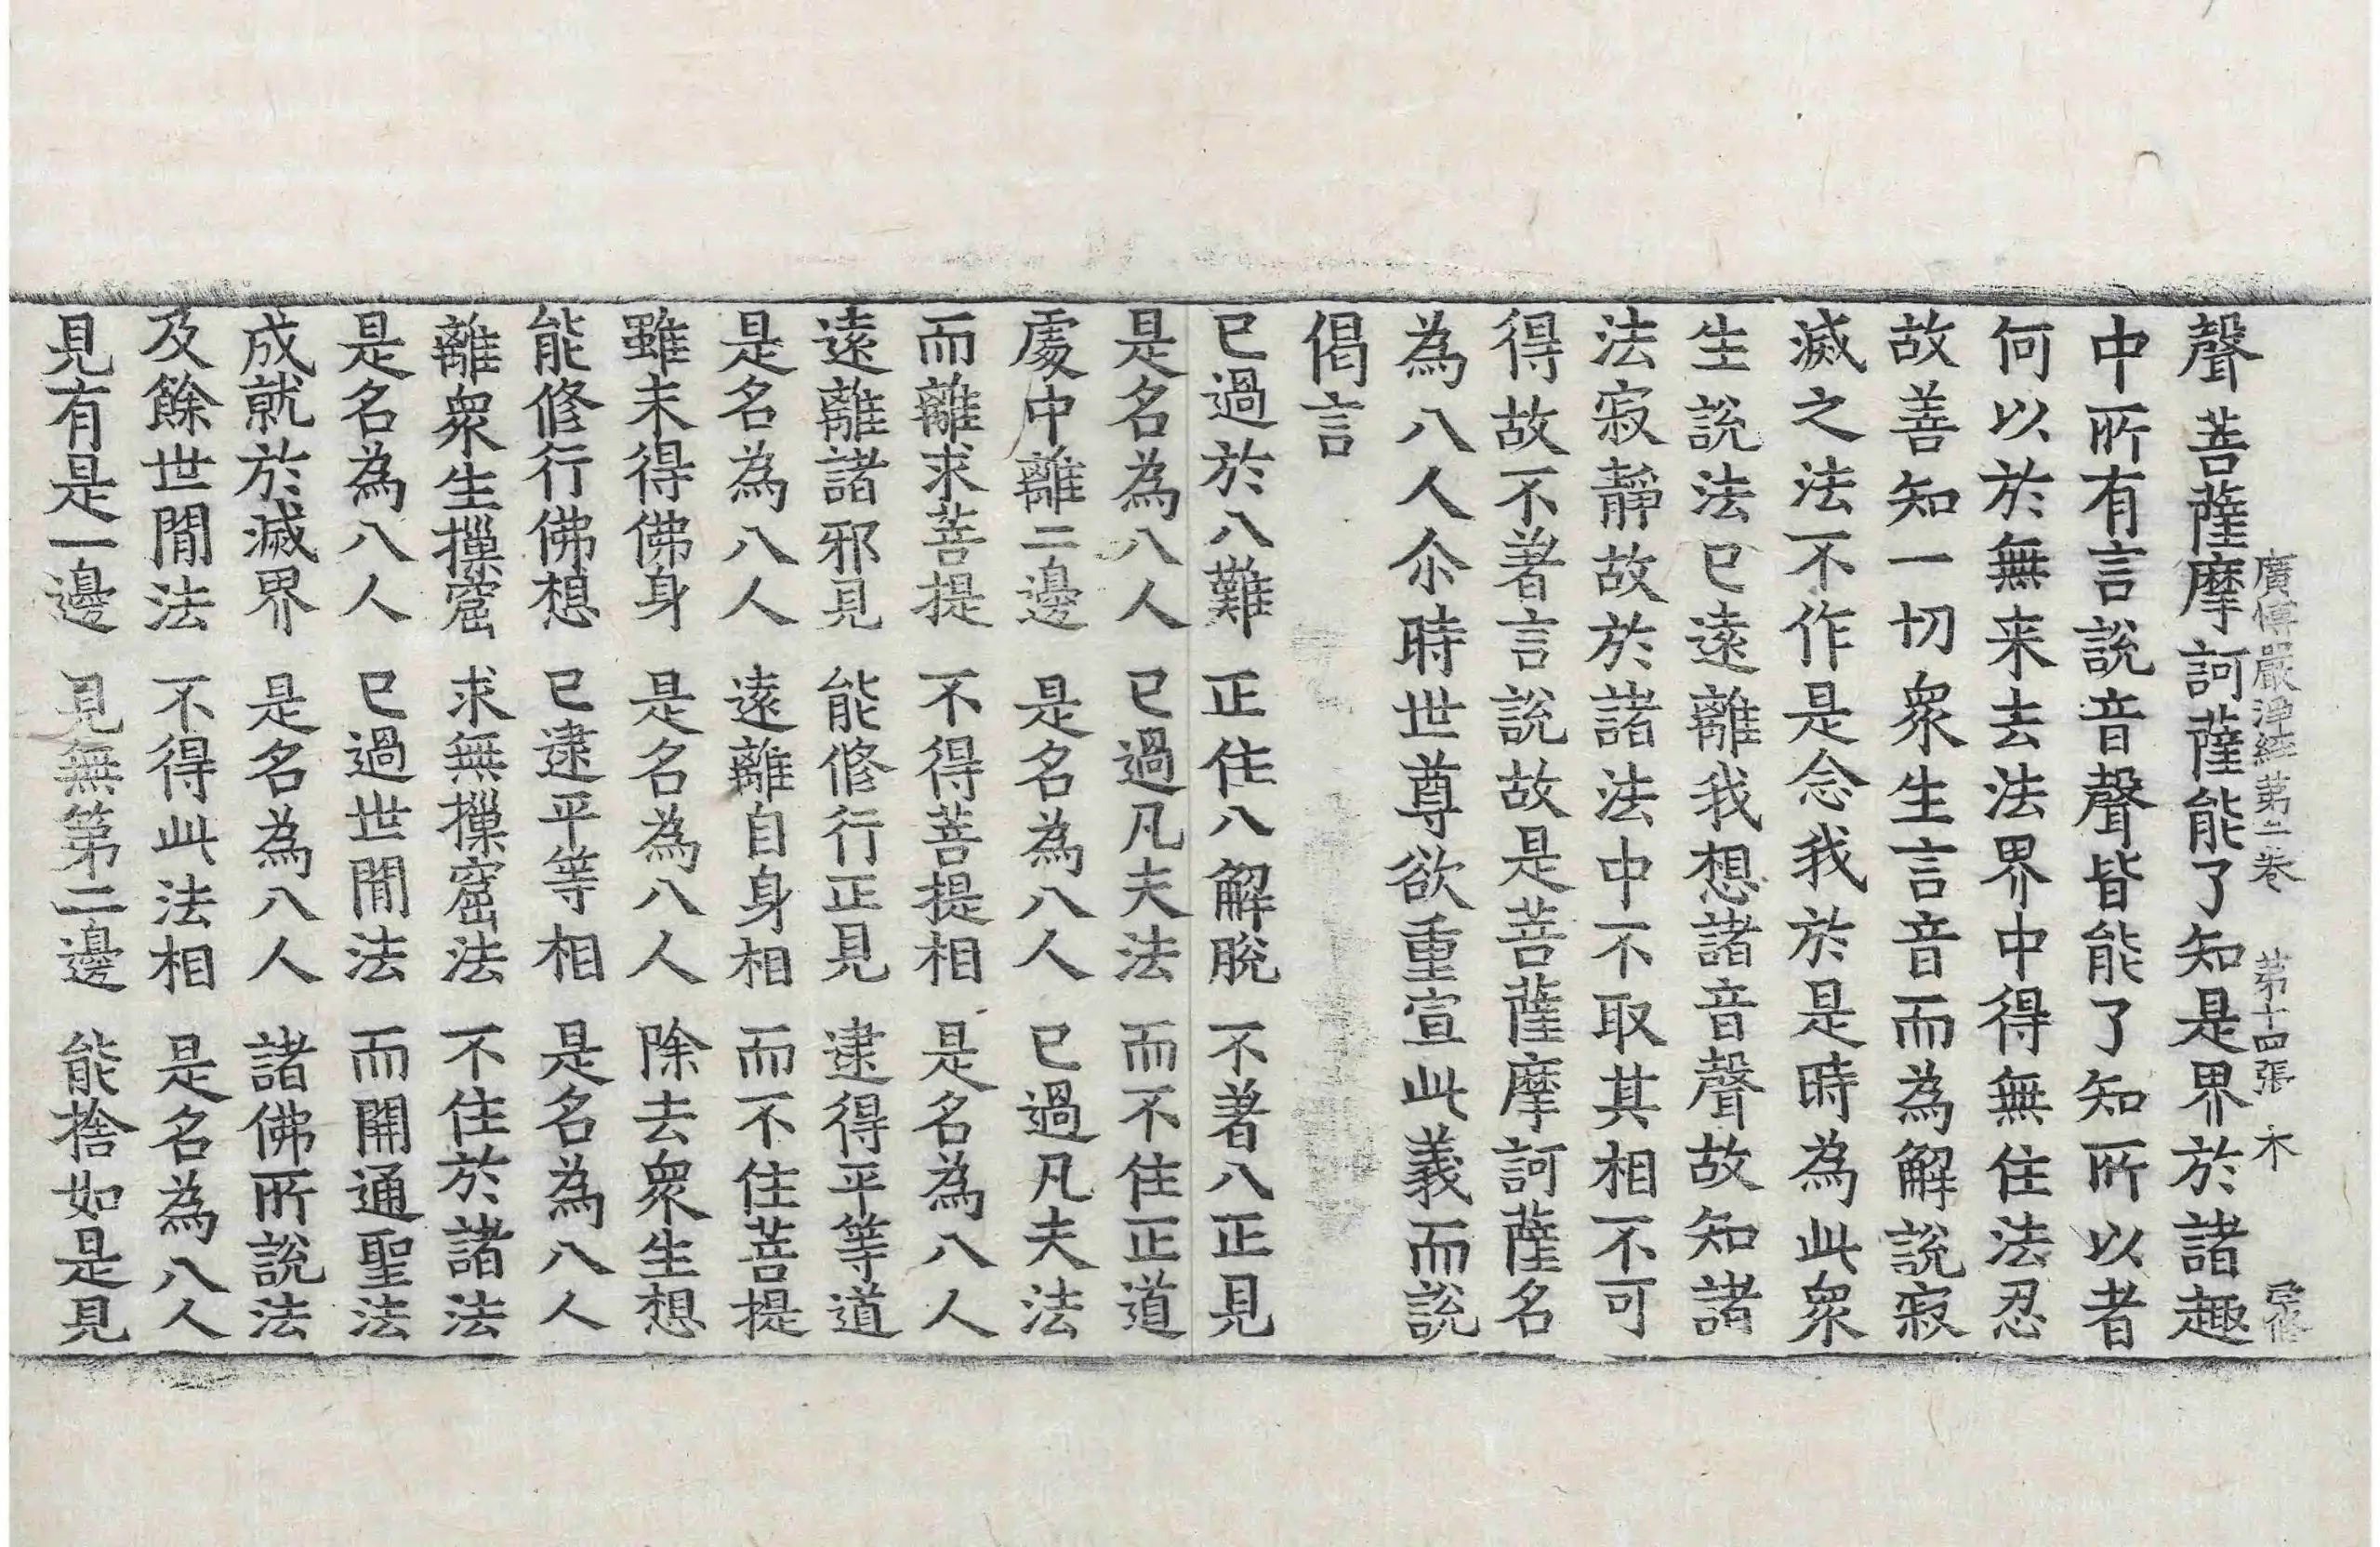 廣博嚴淨經第二卷　第十四張　木
聲菩薩摩訶薩能了知是界於諸趣
中所有言說音聲皆能了知所以者
何以於無来去法界中得無住法忍
故善知一切衆生言音而為解說寂
滅之法不作是念我於是時為此衆
生說法已遠離我想諸音聲故知諸
法寂靜故於諸法中不取其相不可
得故不著言說故是菩薩摩訶薩名
為八人尒時世尊欲重宣此義而說
偈言
已過於八難　正住八解脫　不著八正見
是名為八人　已過凡夫法　而不住正道
處中離二邊　是名為八人　已過凡夫法
而離求菩提　不得菩提相　是名為八人
遠離諸邪見　能修行正見　逮得平等道
是名為八人　遠離自身相　而不住菩提
雖未得佛身　是名為八人　除去衆生想
能修行佛想　已逮平等相　是名為八人
離衆生摷窟　求無摷窟法　不住於諸法
是名為八人　已過世閒法　而開通聖法
成就於滅界　是名為八人　諸佛所說法
及餘世閒法　不得此法相　是名為八人
見有是一邊　見無第二邊　能捨如是見